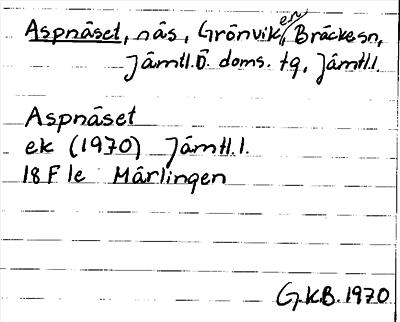 Aspnäset, näs, Grönviken, Bräckesn,
Jämtl.Ö. doms. tg, Jämtl.l.
Aspnäset
ek (1970) Jämtl.l.
18 F 1e Märlingen
G.K.B. 1970